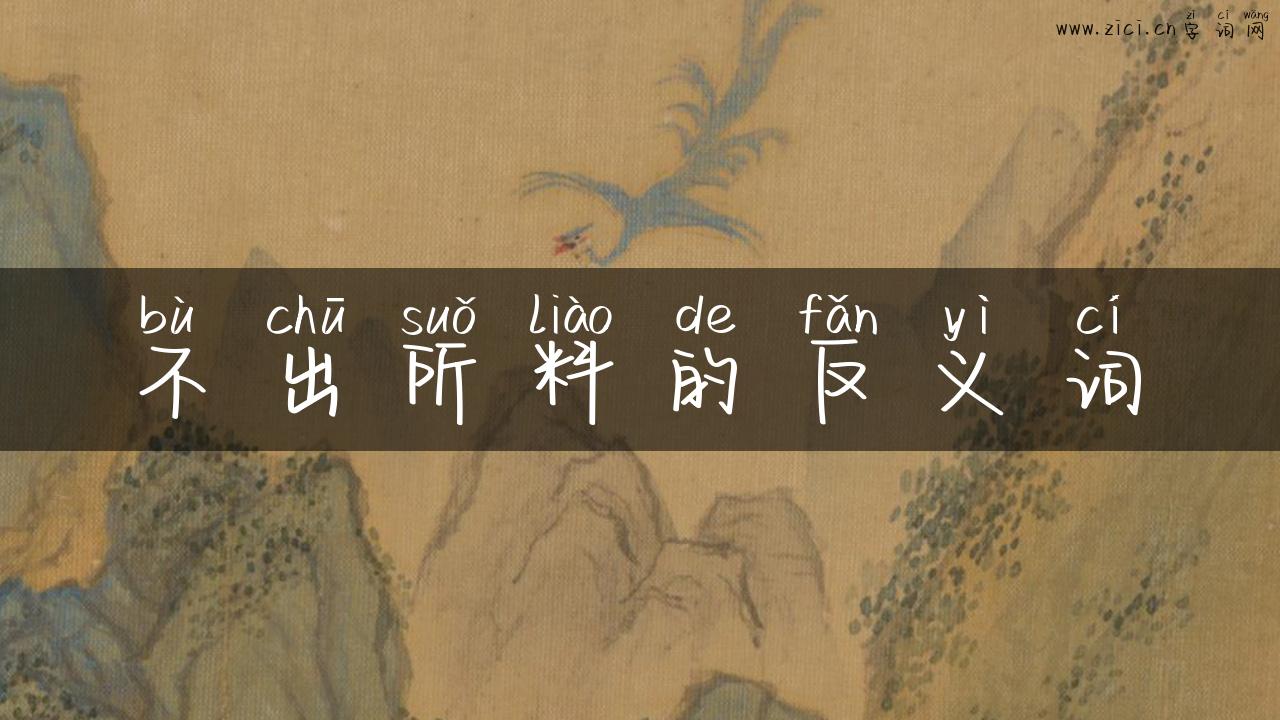 zì cí wǎng
www.zici.cn字词网
bù chū suǒ liào de fǎn yì cí
不出所料的反义词